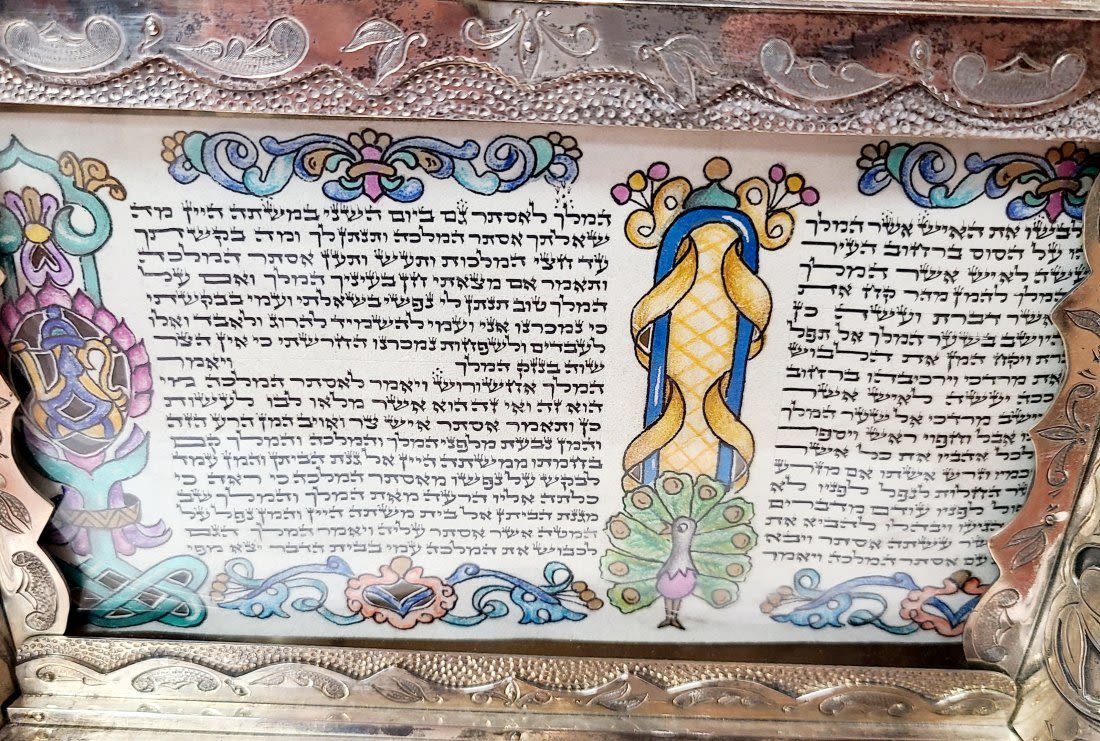 את האיש אשר המלך
על הסוס ברחוב העיר
יעשה לאיש אשר המלך
המלך להמן מהר קח את
כאשר דברת ועשה כן
היושב בשער המלך אל תפל
דברת ויקח המן את הלבוש
את מרדכי וירכיבהו ברחוב
ככה יעשה לאיש אשר
וישב מרדכי אל שער המלך
אבל וחפוי ראש ויספר
ולכל אהביו את כל אשר
חכמיו וזרש אשתו אם מזרע
אשר החלות לנפל לפניו לא
לפניו עודם מדברים
הגיעו ויבהלו להביא את
אשר עשתה אסתר ויבא
עם אסתר המלכה ויאמר
המלך לאסתר גם ביום השני במשתה היין מה
שאלתך אסתר המלכה ותנתן לך ומה בקשתך
עד חצי המלכות ותעש ותען אסתר המלכה
ותאמר אם מצאתי חן בעיניך המלך ואם על
המלך טוב תנתן לי נפשי בשאלתי ועמי בבקשתי
כי נמכרנו אני ועמי להשמיד להרוג ולאבד ואלו
לעבדים ולשפחות נמכרנו החרשתי כי אין הצר
שוה בנזק המלך ויאמר
המלך אחשורוש ויאמר לאסתר המלכה מי
הוא זה ואי זה הוא אשר מלאו לבו לעשות
כן ותאמר אסתר איש צר ואויב המן הרע הזה
והמן נבעת מלפני המלך והמלכה והמלך קם
בחמתו ממשתה היין אל גנת הביתן והמן עמד
לבקש על נפשו מאסתר המלכה כי ראה כי
כלתה אליו הרעה מאת המלך והמלך שב
מגנת הביתן אל בית משתה היין והמן נפל על
המטה אשר אסתר עליה ויאמר המלך הגם
לכבוש את המלכה עמי בבית הדבר יצא מפי